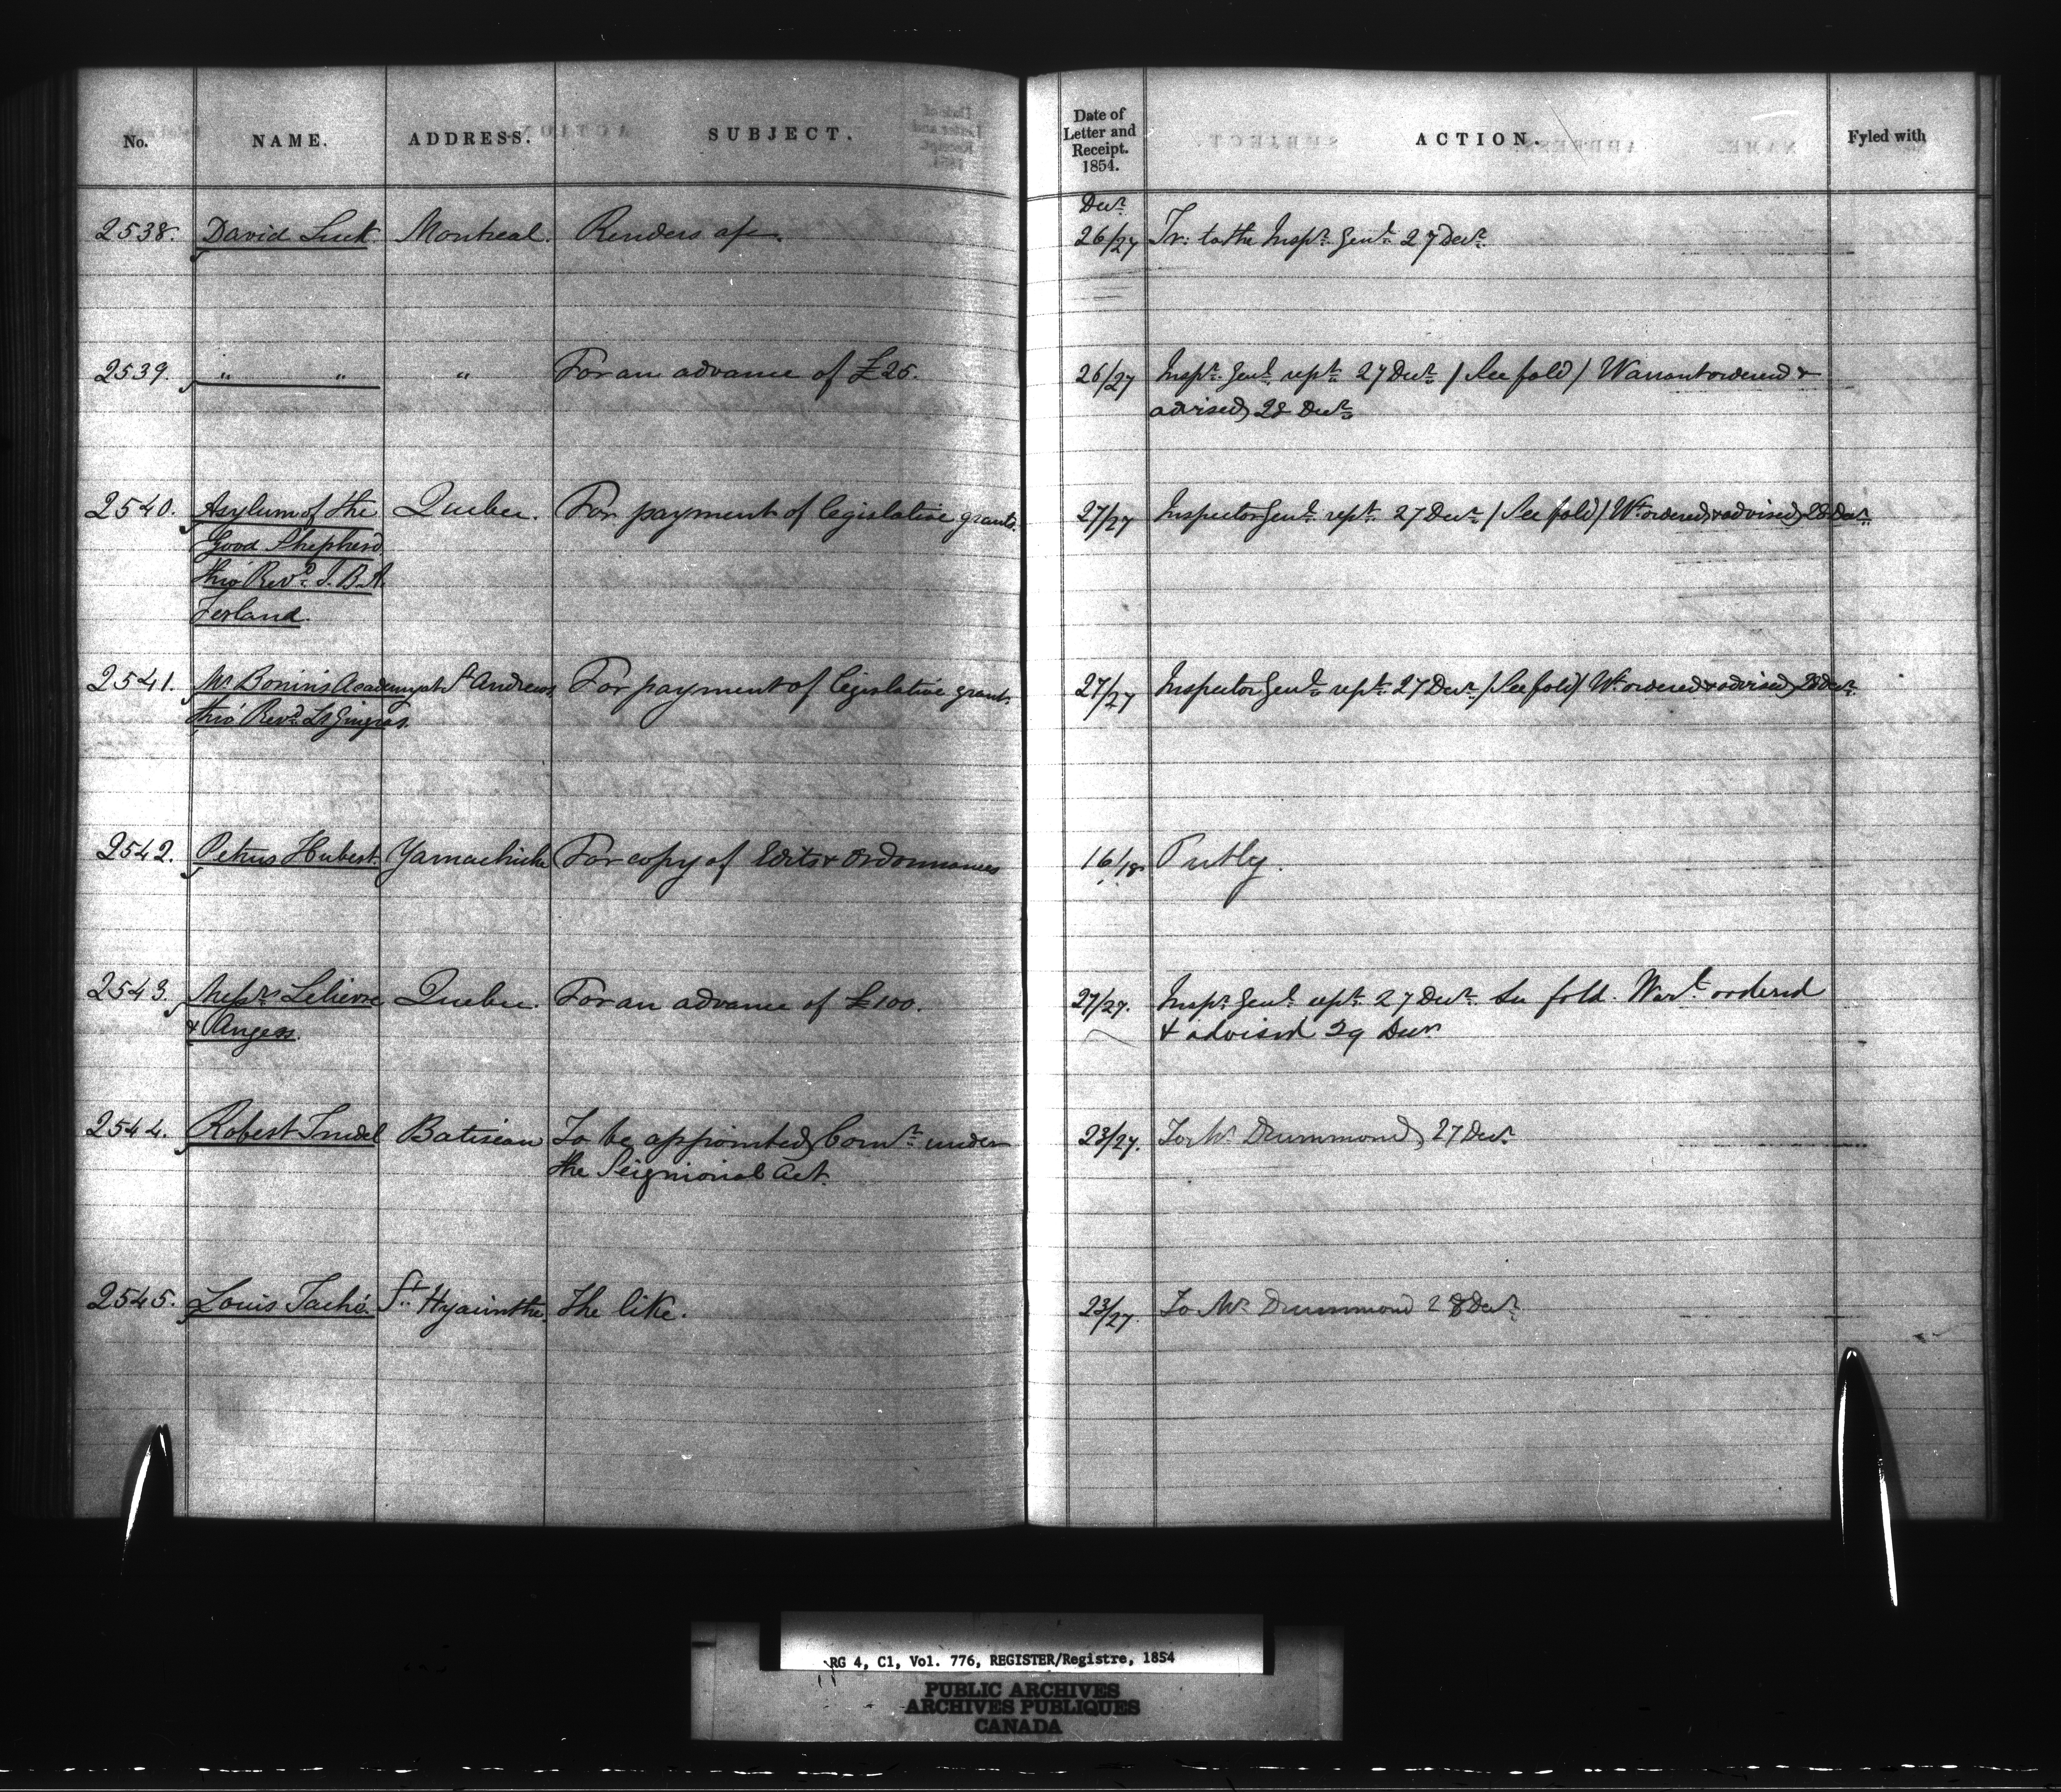 No. NAME. ADDRESS. SUBJECT. Date of Letter and Receipt. 1854. ACTION. Fyled with
Decr.
2538. David Luck Montreal. Renders a/c. 26/27 Tr: to the Inspr. Genl. 27 Decr.
2539. " " " For an advance of £25. 26/27 Inspr. Genl. rept. 27 Decr. / See fold / Warrant ordered &
advised 28 Decr.
2540. Asylum of the Quebec. For payment of legislative grants. 27/27 Inspector Genl. rept. 27 Decr. / See fold / Wt. ordered & advised 28 Decr.
Good Shepherd
thro' Revd. J. B. A.
Ferland.
2541. Mr. Bonin's Academy at St. Andrews For payment of legislative grant. 27/27 Inspector Genl. rept. 27 Decr. / See fold / Wt. ordered & advised 28 Decr.
thro' Revd. Ls. Gingras.
2542. Petrus Hubert Yamachiche For copy of Edits & Ordonnances 16/18 Putby.
2543. Messrs. Lelievre Quebec. For an advance of £100. 27/27. Inspr. Genl. rept. 27 Decr. See fold. Warrt. ordered
& Angers. & advised 29 Decr.
2544. Robert Trudel Batiscan To be appointed Comr. under 23/27. To Mr. Drummond, 27 Decr.
the Seigniorial Act.
2545. Louis Taché. St. Hyacinthe. The like. 23/27. To Mr. Drummond 28 Decr.
RG 4, C1, Vol. 776, REGISTER/Registre, 1854
PUBLIC ARCHIVES
ARCHIVES PUBLIQUES
CANADA